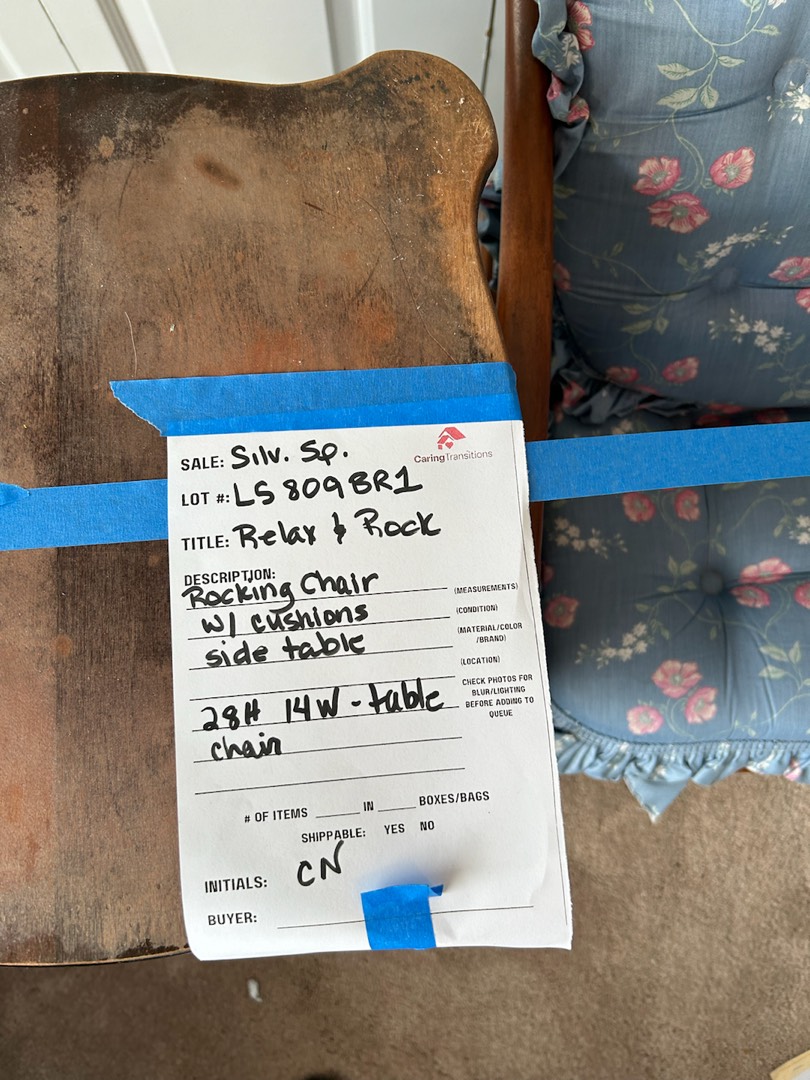 SALE: Silv. Sp.
CaringTransitions
LOT #: LS809BR1
TITLE: Relax & Rock
DESCRIPTION:
Rocking Chair
(MEASUREMENTS)
w/ cushions
(CONDITION)
side table
(MATERIAL/COLOR
/BRAND)
(LOCATION)
CHECK PHOTOS FOR
BLUR/LIGHTING
BEFORE ADDING TO
QUEUE
28H 14W - table
chair
# OF ITEMS ____ IN ____ BOXES/BAGS
SHIPPABLE: YES NO
INITIALS: CN
BUYER: